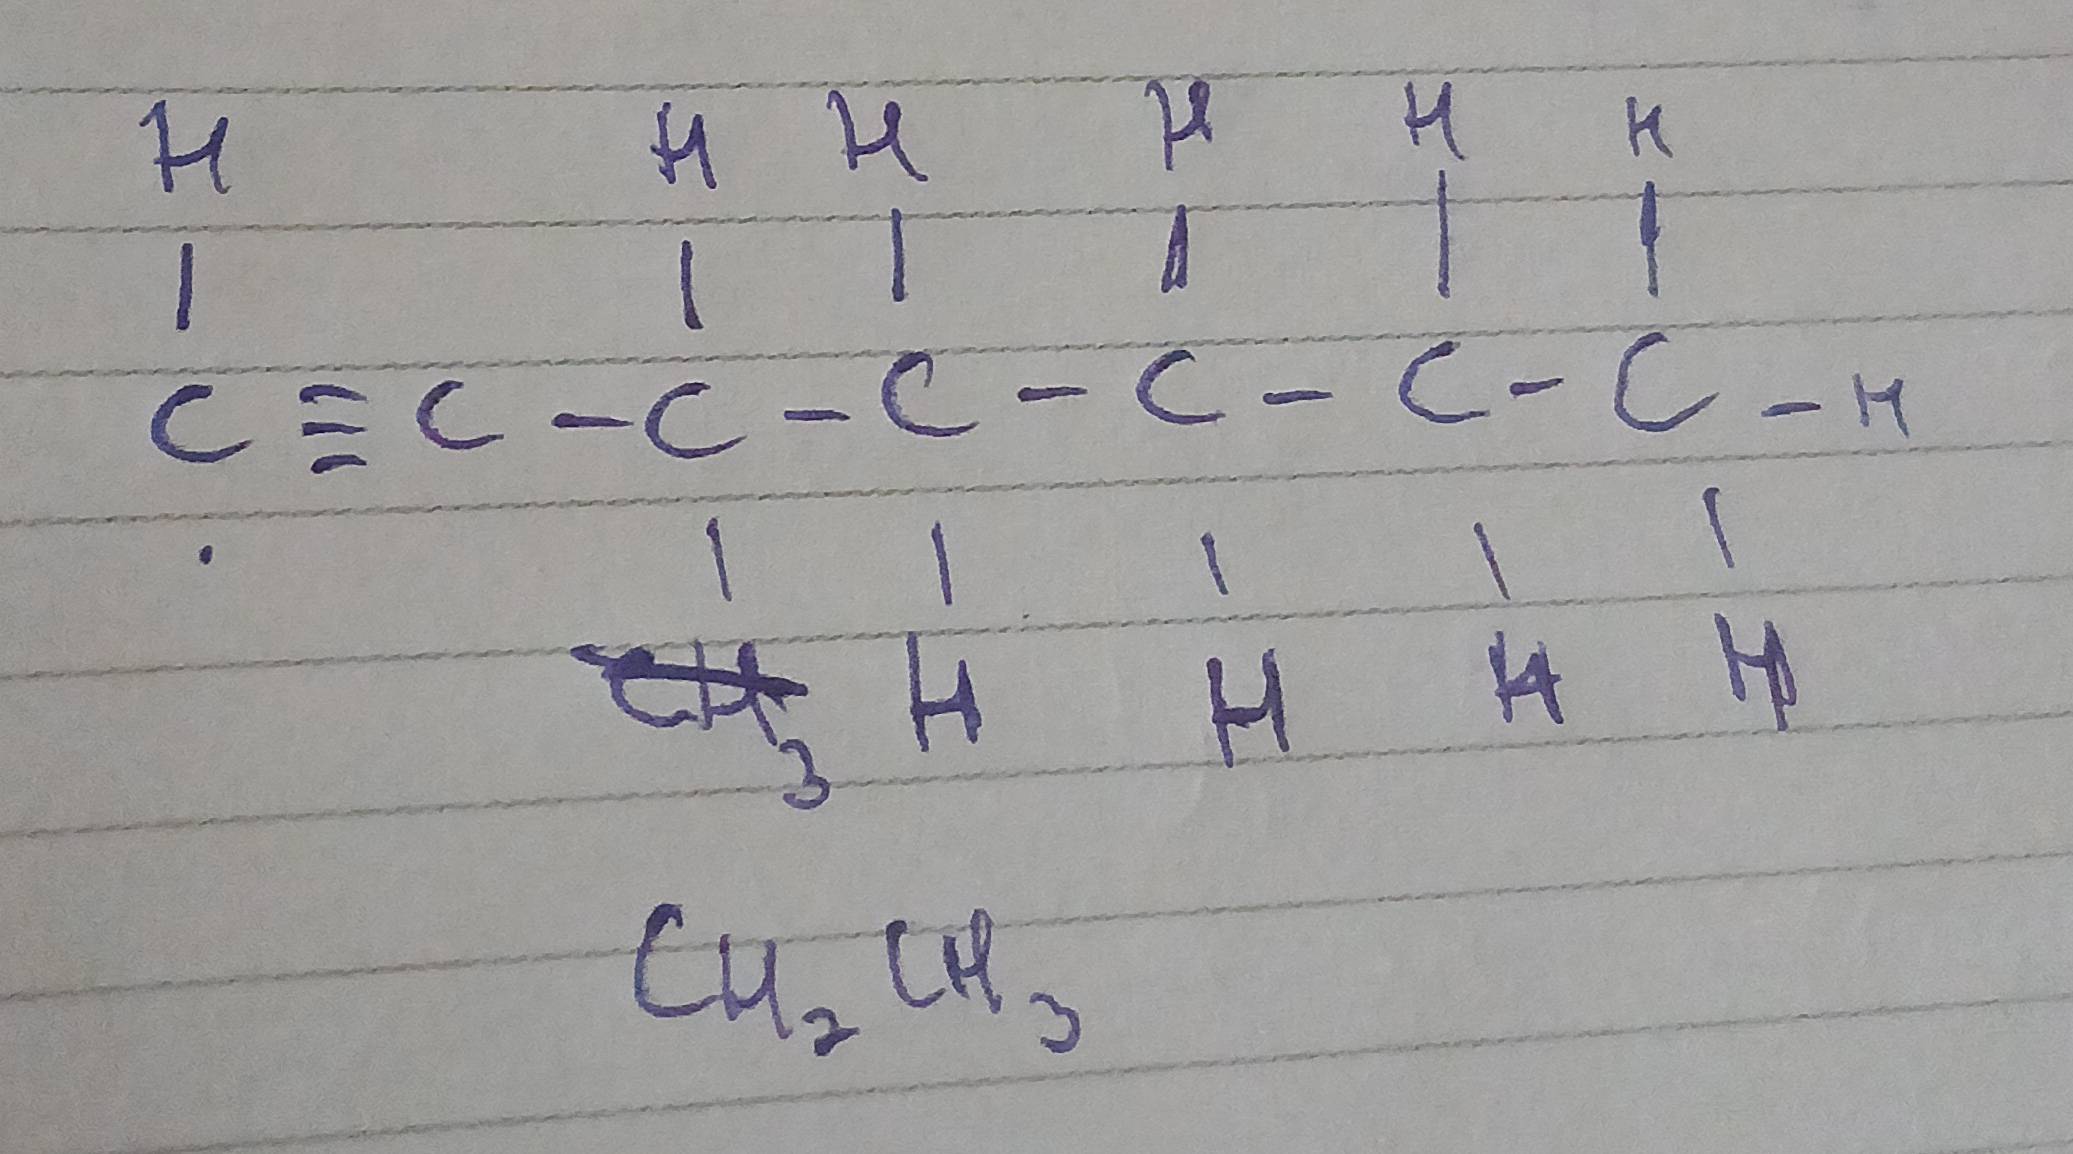 H H H H H H
C ≡ C - C - C - C - C - C - H
CH3 H H H H
CH2 CH3